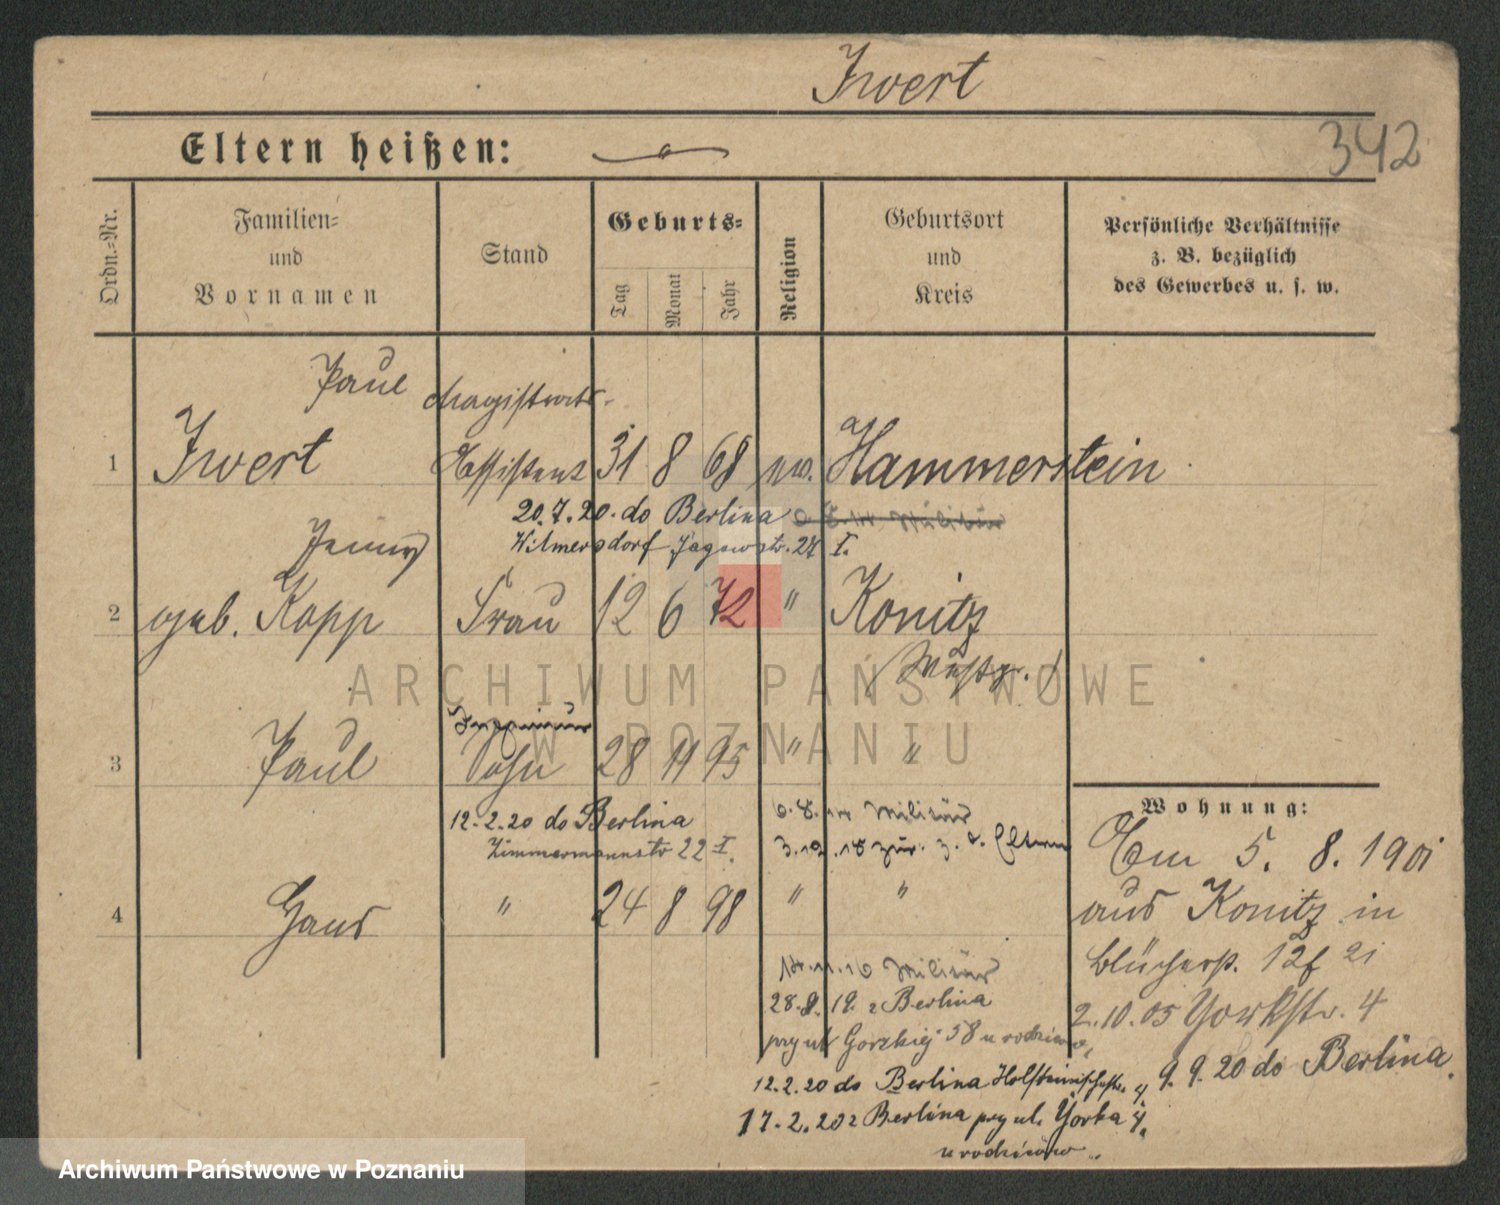 Iwert
Eltern heißen:
342
Ordn.=Nr.
Familien=
und
Vornamen
Stand
Geburts=
Tag
Monat
Jahr
Religion
Geburtsort
und
Kreis
Persönliche Verhältnisse
z. B. bezüglich
des Gewerbes u. s. w.
Paul Magistrats-
1 Iwert Assistent 31 8 68 ev. Hammerstein
20.7.20. do Berlina Militär
Wilmersdorf Jagowstr. 27 I.
Jenny
2 geb. Kopp Frau 12 6 72 " Konitz
(Westpr.)
Ingenieur
3 Paul Sohn 28 11 95 " "
12.2.20 do Berlina
Zimmermannstr 22 I.
6.8. Militär
3.12.18 zur. z. d. Eltern
4 Hans " 24 8 98 " "
14.11.16 Militär
28.8.19. z Berlina
przy ul Gorzkiej 58 u rodziców
12.2.20 do Berlina Holsteinischestr. 4
17.2.20 z Berlina przy ul. Yorka 4.
u rodziców
Wohnung:
Am 5. 8. 1901
aus Konitz in
Blücherst. 12f
2.10.05 Yorkstr. 4
9.9.20 do Berlina.
ARCHIWUM PAŃSTWOWE
W POZNANIU
Archiwum Państwowe w Poznaniu